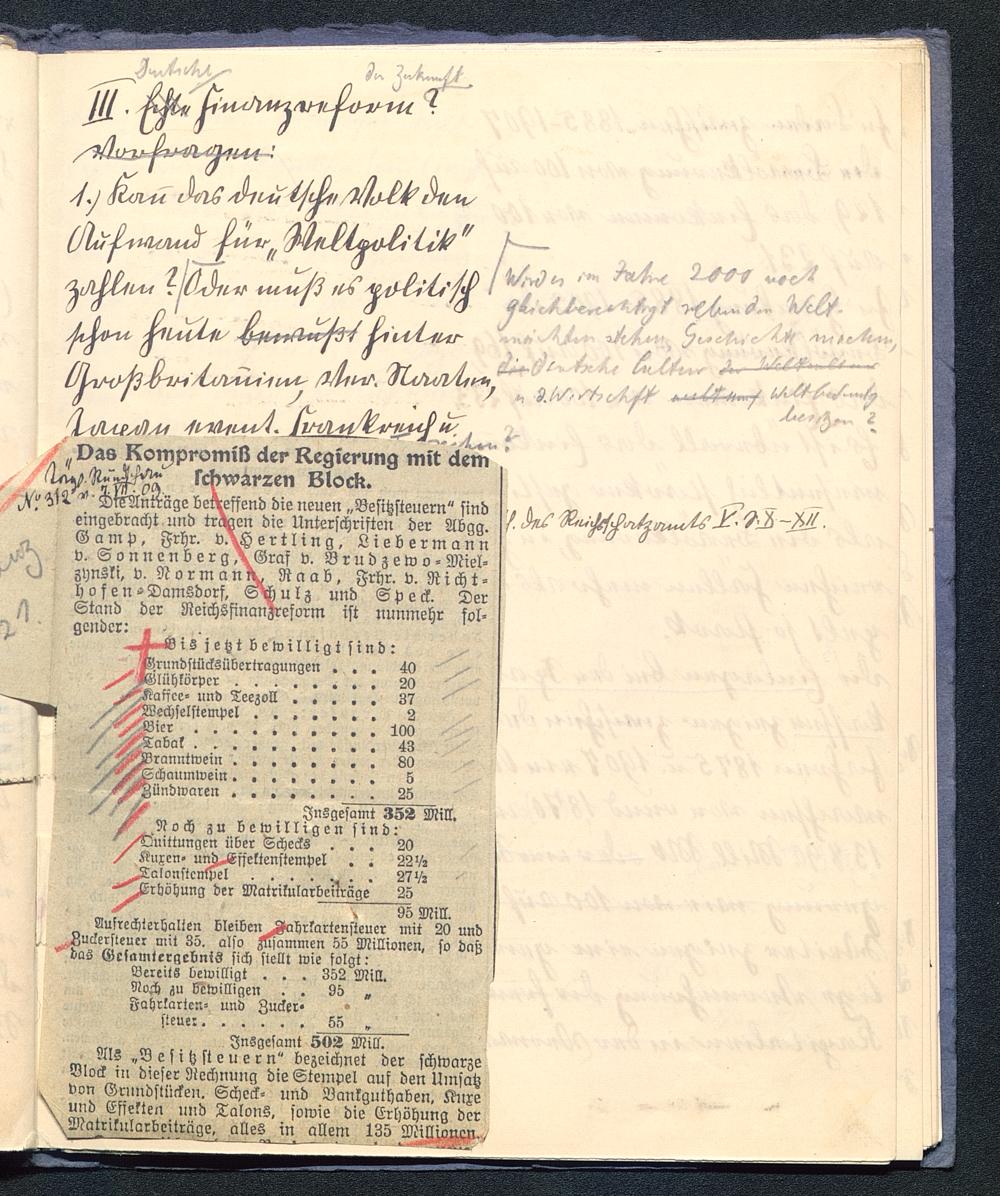 Deutsche
der Zukunft
III. Echte Finanzreform?
Vorfragen:
1.) Kan̄ das deutsche Volk den
Aufwand für „Weltpolitik"
zahlen? Oder muß es politisch
schon heute bewußt hinter
Großbritan̄ien, Ver. Staaten,
Japan event. Frankreich u.
Wird es im Jahre 2000 noch
gleichberechtigt neben den Welt-
mächten stehen, Geschichte machen,
die deutsche Cultur
u. d. Wirtschaft Weltbedeutg
besitzen?
Das Kompromiß der Regierung mit dem
schwarzen Block.
Tägl. Rundschau
No 312 v. 7.VII.09
Die Anträge betreffend die neuen „Besitzsteuern" sind
eingebracht und tragen die Unterschriften der Abgg.
Gamp, Frhr. v. Hertling, Liebermann
v. Sonnenberg, Graf v. Brudzewo-Miel-
zynski, v. Normann, Raab, Frhr. v. Richt-
hofen-Damsdorf, Schulz und Speck. Der
Stand der Reichsfinanzreform ist nunmehr fol-
gender:
des Reichsschatzamts V. S. X–XII.
Bis jetzt bewilligt sind:
Grundstücksübertragungen . . . 40
Glühkörper . . . . . . . . 20
Kaffee- und Teezoll . . . . . 37
Wechselstempel . . . . . . . 2
Bier . . . . . . . . . . 100
Tabak . . . . . . . . . . 43
Branntwein . . . . . . . . 80
Schaumwein . . . . . . . . 5
Zündwaren . . . . . . . . 25
Insgesamt 352 Mill.
Noch zu bewilligen sind:
Quittungen über Schecks . . . 20
Kuxen- und Effektenstempel . . 22½
Talonstempel . . . . . . . 27½
Erhöhung der Matrikularbeiträge 25
95 Mill.
Aufrechterhalten bleiben Fahrkartensteuer mit 20 und
Zuckersteuer mit 35, also zusammen 55 Millionen, so daß
das Gesamtergebnis sich stellt wie folgt:
Bereits bewilligt . . . 352 Mill.
Noch zu bewilligen . . 95 „
Fahrkarten- und Zucker-
steuer . . . . . . 55 „
Insgesamt 502 Mill.
Als „Besitzsteuern" bezeichnet der schwarze
Block in dieser Rechnung die Stempel auf den Umsatz
von Grundstücken, Scheck- und Bankguthaben, Kuxe
und Effekten und Talons, sowie die Erhöhung der
Matrikularbeiträge, alles in allem 135 Millionen.